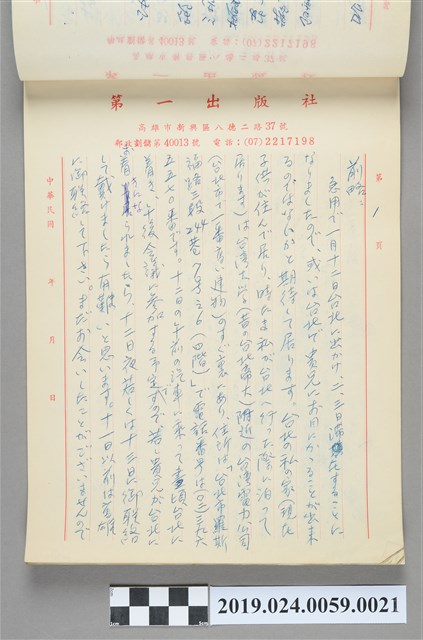 第一出版社
高雄市新興區八德二路37號
郵政劃儲第40013號 電話:(07)2217198
第 1 頁
前略:
急用で一月十二日台北に出かけ、二、三日滞在することに
なりましたので、或いは台北で貴兄にお目にかかることが出来
るのではないかと期待して居ります。台北の私の家(現在
子供が住んで居り、時たま私が台北へ行った際に泊って
居ります)は台湾大学(昔の台北帝大)附近の台湾電力公司
(台北市で一番高い建物)のすぐ裏にあり、住所は「台北市羅斯
福路三段244巷 号之6(四階)」で電話番号は(〇二)三九六
五五七〇番です。十二日の午前の汽車に乗って晝頃台北に
着き、午後会議に参加する予定ですので若し貴兄が台北に
お着きになられましたら、十二日夜若しくは十三日に御聯絡
して戴けましたら有難いと思います。十一日以前は高雄
に御聯絡して下さい。まだお会いしたことがございませんので
中華民國 年 月 日
2019.024.0059.0021